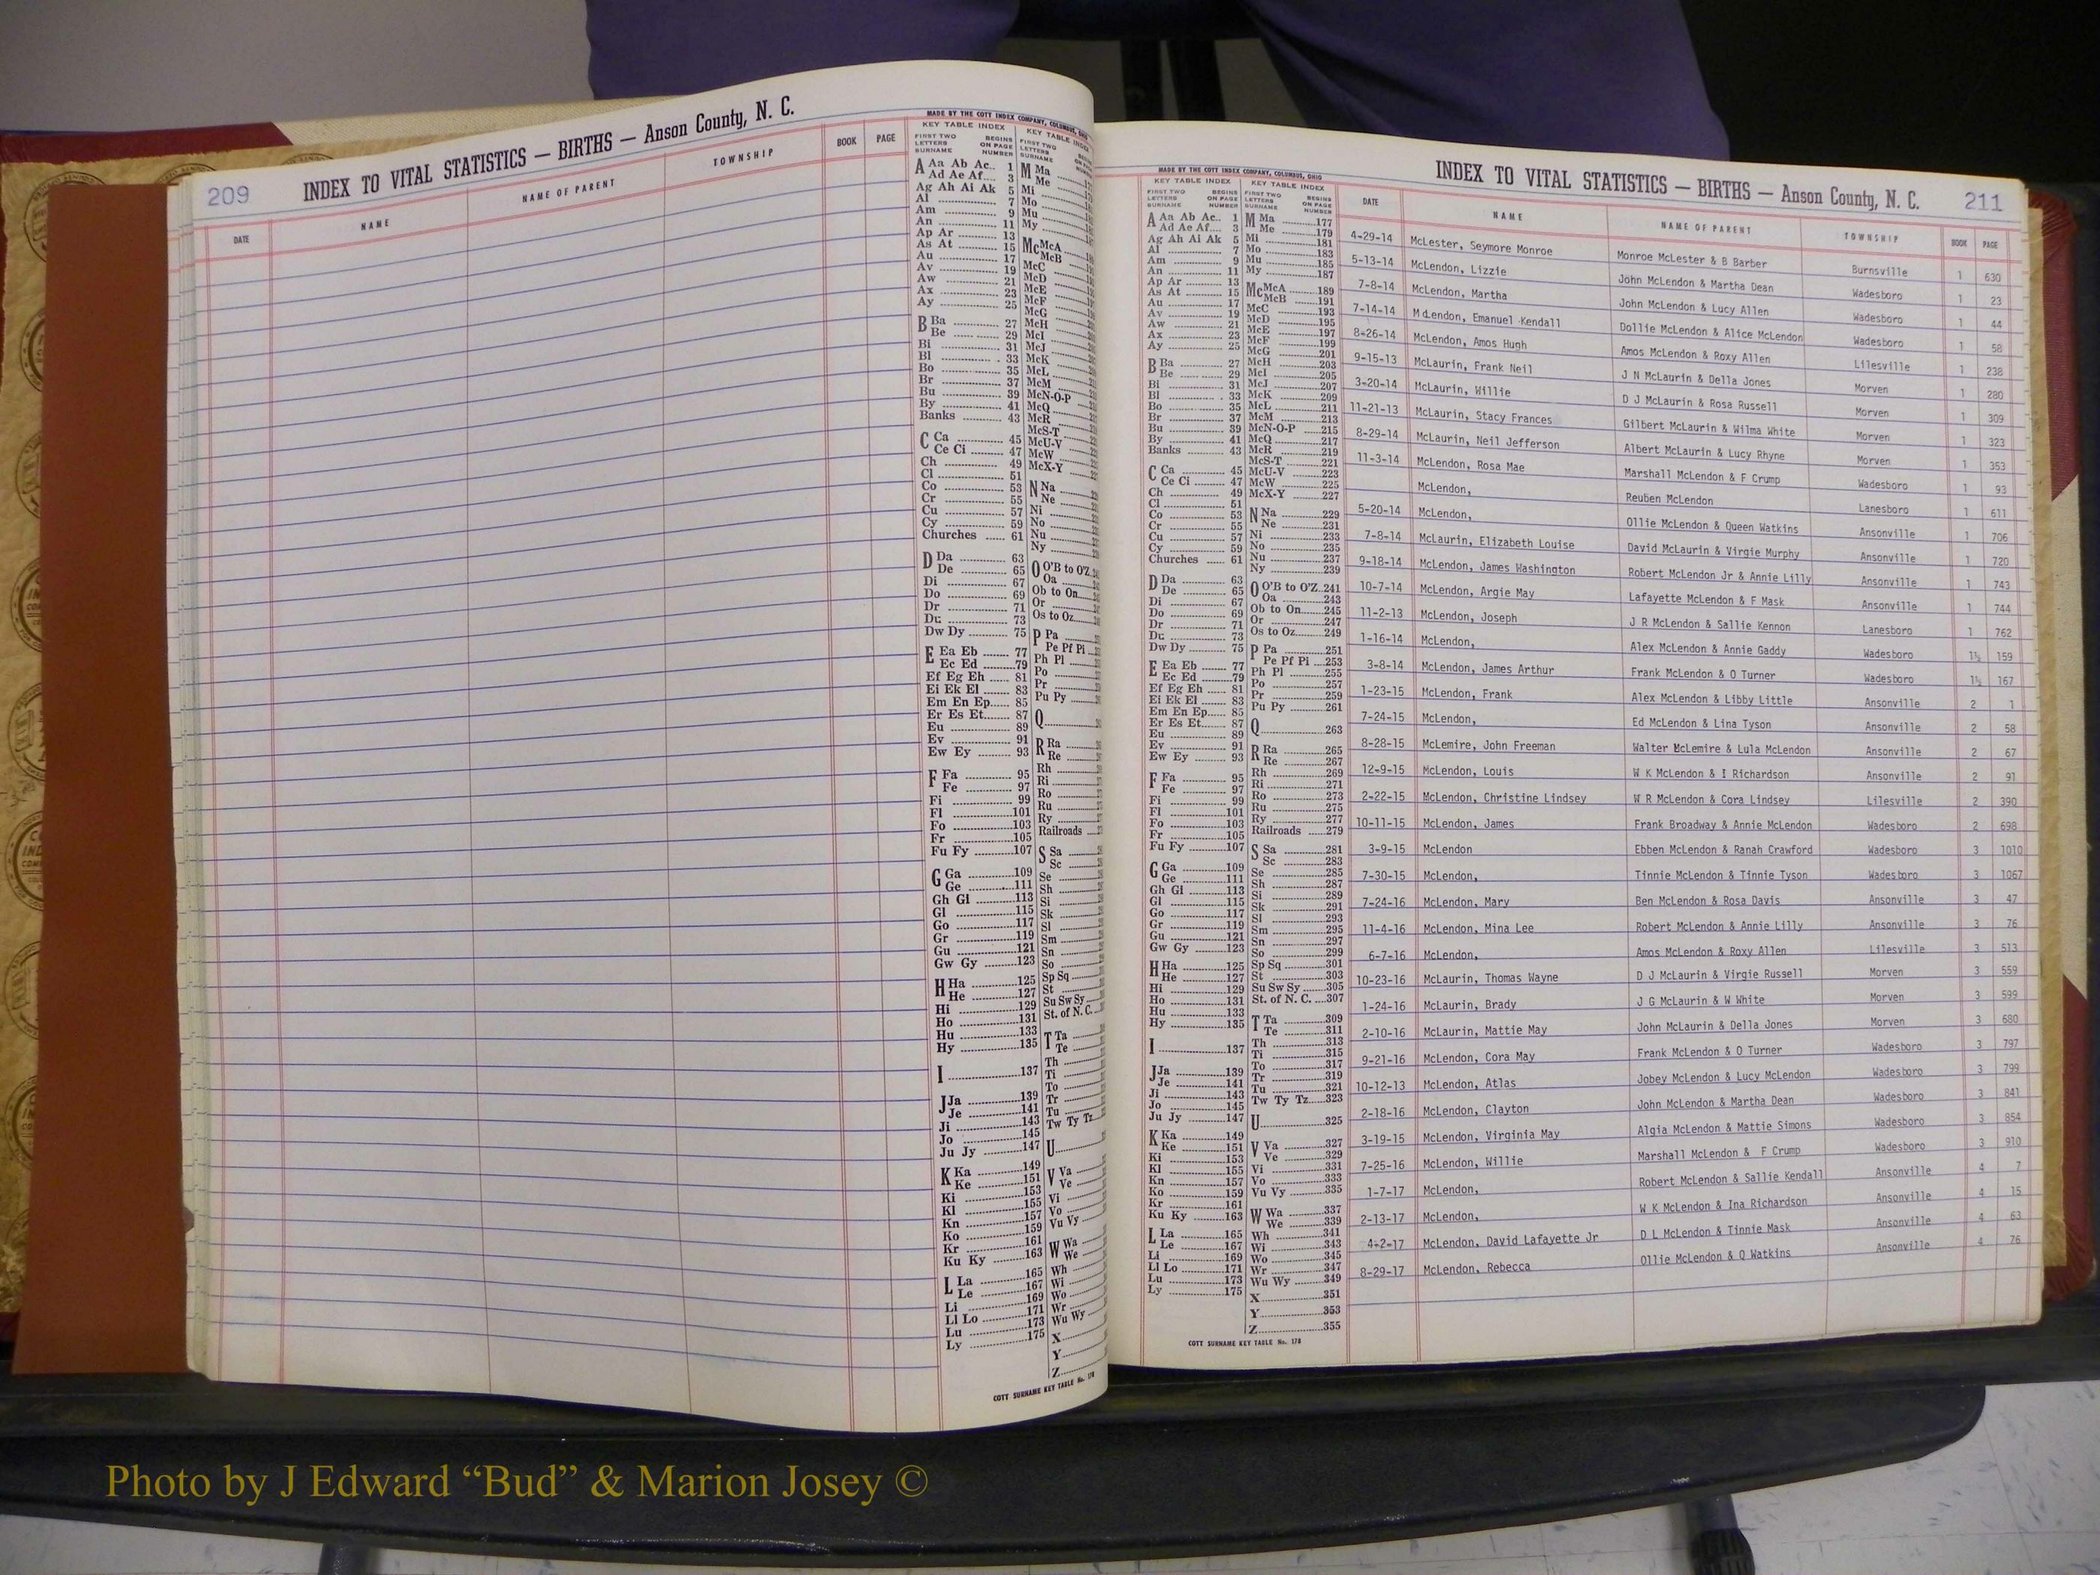 209
INDEX TO VITAL STATISTICS — BIRTHS — Anson County, N. C.
DATE NAME NAME OF PARENT TOWNSHIP BOOK PAGE
MADE BY THE COTT INDEX COMPANY, COLUMBUS, OHIO
KEY TABLE INDEX KEY TABLE INDEX
FIRST TWO LETTERS SURNAME BEGINS ON PAGE NUMBER
A Aa Ab Ac.. 1
Ad Ae Af.... 3
Ag Ah Ai Ak 5
Al 7
Am 9
An 11
Ap Ar 13
As At 15
Au 17
Av 19
Aw 21
Ax 23
Ay 25
B Ba 27
Be 29
Bi 31
Bl 33
Bo 35
Br 37
Bu 39
By 41
Banks 43
C Ca 45
Ce Ci 47
Ch 49
Cl 51
Co 53
Cr 55
Cu 57
Cy 59
Churches 61
D Da 63
De 65
Di 67
Do 69
Dr 71
Du 73
Dw Dy 75
E Ea Eb 77
Ec Ed 79
Ef Eg Eh 81
Ei Ek El 83
Em En Ep 85
Er Es Et 87
Eu 89
Ev 91
Ew Ey 93
F Fa 95
Fe 97
Fi 99
Fl 101
Fo 103
Fr 105
Fu Fy 107
G Ga 109
Ge 111
Gh Gi 113
Gl 115
Go 117
Gr 119
Gu 121
Gw Gy 123
H Ha 125
He 127
Hi 129
Ho 131
Hu 133
Hy 135
I 137
J Ja 139
Je 141
Ji 143
Jo 145
Ju Jy 147
K Ka 149
Ke 151
Ki 153
Kl 155
Kn 157
Ko 159
Kr 161
Ku Ky 163
L La 165
Le 167
Li 169
Ll Lo 171
Lu 173
Ly 175
M Ma
Me
Mi
Mo
Mu
My
Mc McA
McB
McC
McD
McE
McF
McG
McH
McI
McJ
McK
McL
McM
McN-O-P
McQ
McR
McS-T
McU-V
McW
McX-Y
N Na
Ne
Ni
No
Nu
Ny
O O'B to O'Z
Oa
Ob to On
Or
Os to Oz
P Pa
Pe Pf Pi
Ph Pl
Po
Pr
Pu Py
Q
R Ra
Re
Rh
Ri
Ro
Ru
Ry
Railroads
S Sa
Sc
Se
Sh
Si
Sk
Sl
Sm
Sn
So
Sp Sq
St
Su Sw Sy
St. of N. C.
T Ta
Te
Th
Ti
To
Tr
Tu
Tw Ty Tz
U
V Va
Ve
Vi
Vo
Vu Vy
W Wa
We
Wh
Wi
Wo
Wr
Wu Wy
X
Y
Z
COTT SURNAME KEY TABLE No. 178
MADE BY THE COTT INDEX COMPANY, COLUMBUS, OHIO
KEY TABLE INDEX KEY TABLE INDEX
FIRST TWO LETTERS SURNAME BEGINS ON PAGE NUMBER FIRST TWO LETTERS SURNAME BEGINS ON PAGE NUMBER
A Aa Ab Ac.. 1
Ad Ae Af.... 3
Ag Ah Ai Ak 5
Al 7
Am 9
An 11
Ap Ar 13
As At 15
Au 17
Av 19
Aw 21
Ax 23
Ay 25
B Ba 27
Be 29
Bi 31
Bl 33
Bo 35
Br 37
Bu 39
By 41
Banks 43
C Ca 45
Ce Ci 47
Ch 49
Cl 51
Co 53
Cr 55
Cu 57
Cy 59
Churches 61
D Da 63
De 65
Di 67
Do 69
Dr 71
Du 73
Dw Dy 75
E Ea Eb 77
Ec Ed 79
Ef Eg Eh 81
Ei Ek El 83
Em En Ep 85
Er Es Et 87
Eu 89
Ev 91
Ew Ey 93
F Fa 95
Fe 97
Fi 99
Fl 101
Fo 103
Fr 105
Fu Fy 107
G Ga 109
Ge 111
Gh Gi 113
Gl 115
Go 117
Gr 119
Gu 121
Gw Gy 123
H Ha 125
He 127
Hi 129
Ho 131
Hu 133
Hy 135
I 137
J Ja 139
Je 141
Ji 143
Jo 145
Ju Jy 147
K Ka 149
Ke 151
Ki 153
Kl 155
Kn 157
Ko 159
Kr 161
Ku Ky 163
L La 165
Le 167
Li 169
Ll Lo 171
Lu 173
Ly 175
M Ma 177
Me 179
Mi 181
Mo 183
Mu 185
My 187
Mc McA 189
McB 191
McC 193
McD 195
McE 197
McF 199
McG 201
McH 203
McI 205
McJ 207
McK 209
McL 211
McM 213
McN-O-P 215
McQ 217
McR 219
McS-T 221
McU-V 223
McW 225
McX-Y 227
N Na 229
Ne 231
Ni 233
No 235
Nu 237
Ny 239
O O'B to O'Z 241
Oa 243
Ob to On 245
Or 247
Os to Oz 249
P Pa 251
Pe Pf Pi 253
Ph Pl 255
Po 257
Pr 259
Pu Py 261
Q 263
R Ra 265
Re 267
Rh 269
Ri 271
Ro 273
Ru 275
Ry 277
Railroads 279
S Sa 281
Sc 283
Se 285
Sh 287
Si 289
Sk 291
Sl 293
Sm 295
Sn 297
So 299
Sp Sq 301
St 303
Su Sw Sy 305
St. of N. C. 307
T Ta 309
Te 311
Th 313
Ti 315
To 317
Tr 319
Tu 321
Tw Ty Tz 323
U 325
V Va 327
Ve 329
Vi 331
Vo 333
Vu Vy 335
W Wa 337
We 339
Wh 341
Wi 343
Wo 345
Wr 347
Wu Wy 349
X 351
Y 353
Z 355
COTT SURNAME KEY TABLE No. 178
INDEX TO VITAL STATISTICS — BIRTHS — Anson County, N. C. 211
DATE NAME NAME OF PARENT TOWNSHIP BOOK PAGE
4-29-14 McLester, Seymore Monroe Monroe McLester & B Barber Burnsville 1 630
5-13-14 McLendon, Lizzie John McLendon & Martha Dean Wadesboro 1 23
7-8-14 McLendon, Martha John McLendon & Lucy Allen Wadesboro 1 44
7-14-14 McLendon, Emanuel Kendall Dollie McLendon & Alice McLendon Wadesboro 1 58
8-26-14 McLendon, Amos Hugh Amos McLendon & Roxy Allen Lilesville 1 238
9-15-13 McLaurin, Frank Neil J N McLaurin & Della Jones Morven 1 280
3-20-14 McLaurin, Willie D J McLaurin & Rosa Russell Morven 1 309
11-21-13 McLaurin, Stacy Frances Gilbert McLaurin & Wilma White Morven 1 323
8-29-14 McLaurin, Neil Jefferson Albert McLaurin & Lucy Rhyne Morven 1 353
11-3-14 McLendon, Rosa Mae Marshall McLendon & F Crump Wadesboro 1 93
McLendon, Reuben McLendon Lanesboro 1 611
5-20-14 McLendon, Ollie McLendon & Queen Watkins Ansonville 1 706
7-8-14 McLaurin, Elizabeth Louise David McLaurin & Virgie Murphy Ansonville 1 720
9-18-14 McLendon, James Washington Robert McLendon Jr & Annie Lilly Ansonville 1 743
10-7-14 McLendon, Argie May Lafayette McLendon & F Mask Ansonville 1 744
11-2-13 McLendon, Joseph J R McLendon & Sallie Kennon Lanesboro 1 762
1-16-14 McLendon, Alex McLendon & Annie Gaddy Wadesboro 1½ 159
3-8-14 McLendon, James Arthur Frank McLendon & O Turner Wadesboro 1½ 167
1-23-15 McLendon, Frank Alex McLendon & Libby Little Ansonville 2 1
7-24-15 McLendon, Ed McLendon & Lina Tyson Ansonville 2 58
8-28-15 McLemire, John Freeman Walter McLemire & Lula McLendon Ansonville 2 67
12-9-15 McLendon, Louis W K McLendon & I Richardson Ansonville 2 91
2-22-15 McLendon, Christine Lindsey W R McLendon & Cora Lindsey Lilesville 2 390
10-11-15 McLendon, James Frank Broadway & Annie McLendon Wadesboro 2 698
3-9-15 McLendon Ebben McLendon & Ranah Crawford Wadesboro 3 1010
7-30-15 McLendon, Tinnie McLendon & Tinnie Tyson Wadesboro 3 1067
7-24-16 McLendon, Mary Ben McLendon & Rosa Davis Ansonville 3 47
11-4-16 McLendon, Mina Lee Robert McLendon & Annie Lilly Ansonville 3 76
6-7-16 McLendon, Amos McLendon & Roxy Allen Lilesville 3 513
10-23-16 McLaurin, Thomas Wayne D J McLaurin & Virgie Russell Morven 3 559
1-24-16 McLaurin, Brady J G McLaurin & W White Morven 3 599
2-10-16 McLaurin, Mattie May John McLaurin & Della Jones Morven 3 680
9-21-16 McLendon, Cora May Frank McLendon & O Turner Wadesboro 3 797
10-12-13 McLendon, Atlas Jobey McLendon & Lucy McLendon Wadesboro 3 799
2-18-16 McLendon, Clayton John McLendon & Martha Dean Wadesboro 3 841
3-19-15 McLendon, Virginia May Algia McLendon & Mattie Simons Wadesboro 3 854
7-25-16 McLendon, Willie Marshall McLendon & F Crump Wadesboro 3 910
1-7-17 McLendon, Robert McLendon & Sallie Kendall Ansonville 4 7
2-13-17 McLendon, W K McLendon & Ina Richardson Ansonville 4 15
4-2-17 McLendon, David Lafayette Jr D L McLendon & Tinnie Mask Ansonville 4 63
8-29-17 McLendon, Rebecca Ollie McLendon & Q Watkins Ansonville 4 76
Photo by J Edward “Bud” & Marion Josey ©